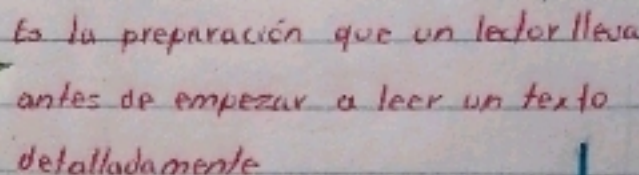 Es la preparación que un lector lleva
antes de empezar a leer un texto
detalladamente